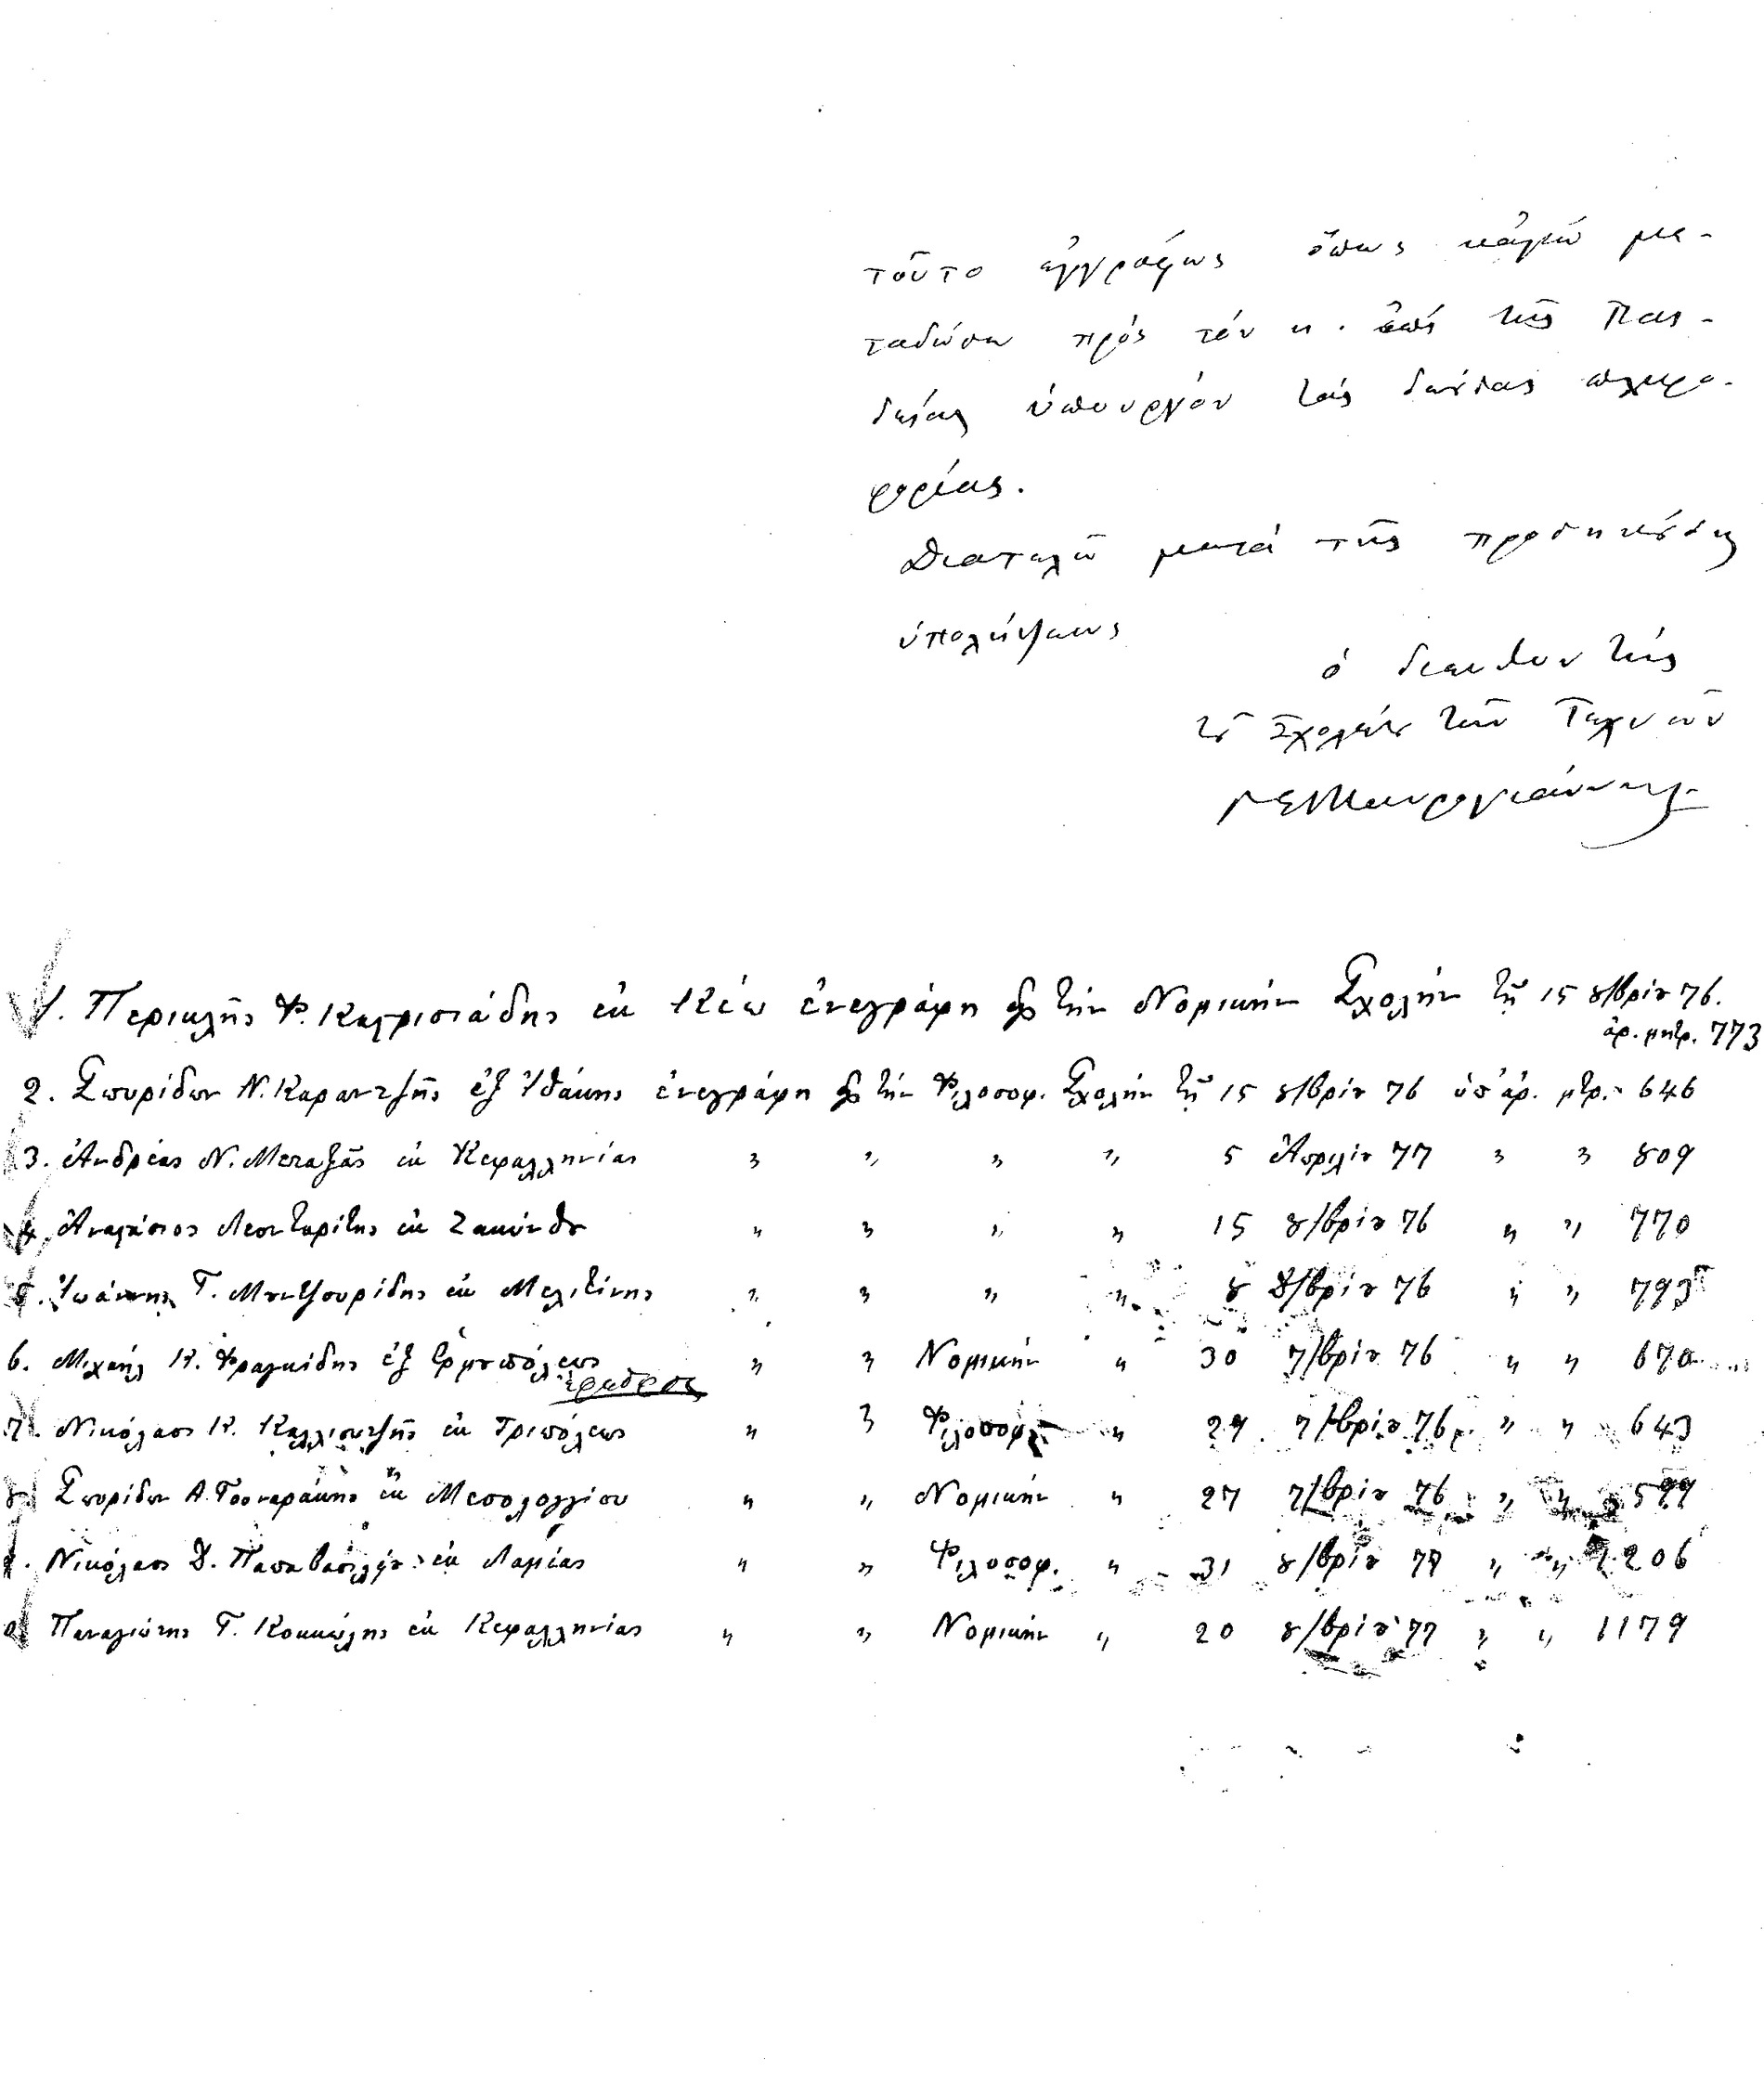 τοῦτο ἐγγράφως ὅπως κἀγώ με-
ταδώσω πρός τόν κ. ἐπί τῆς Παι-
δείας ὑπουργόν τάς δεούσας πληρο-
φορίας.
Διατελῶ μετά τῆς προσηκούσης
ὑπολήψεως
ὁ διευθυντής
τοῦ Σχολείου τῶν Τεχνῶν
Γ Ε Μαυρογιάννης
1. Περικλῆς Φ. ἐκ Κέω ἐνεγράφη εἰς τήν Νομικήν Σχολήν τῇ 15 8/βρίου 76.
ἀρ. μητρ. 773
2. Σπυρίδων Ν. Καραντζῆς ἐξ Ἰθάκης ἐνεγράφη εἰς τήν Φιλοσοφ. Σχολήν τῇ 15 8/βρίου 76 ὑπ' ἀρ. μτρ. 646
3. Ἀνδρέας Ν. Μεταξᾶς ἐκ Κεφαλληνίας " " " " 5 Ἀπριλίου 77 " " 809
4. Ἀναστάσιος Λεονταρίτης ἐκ Ζακύνθου " " " " 15 8/βρίου 76 " " 770
5. Ἰωάννης Γ. Μουτζουρίδης ἐκ Μελιτίνης " " " " 8 8/βρίου 76 " " 793
6. Μιχαήλ Κ. Φραγκίδης ἐξ Ἑρμουπόλεως " " Νομικήν " 30 7/βρίου 76 " " 670
7. Νικόλαος Κ. Καλλιοντζῆς ἐκ Τριπόλεως " " Φιλοσοφ. " 29 7/βρίου 76 " " 643
8. Σπυρίδων Α. Γουναράκης ἐκ Μεσολογγίου " " Νομικήν " 27 7/βρίου 76 " " 599
9. Νικόλαος Δ. Παπαβασιλείου ἐκ Λαμίας " " Φιλοσοφ. " 31 8/βρίου 77 " " 1206
Παναγιώτης Γ. Κοκκώλης ἐκ Κεφαλληνίας " " Νομικήν " 20 8/βρίου 77 " " 1179